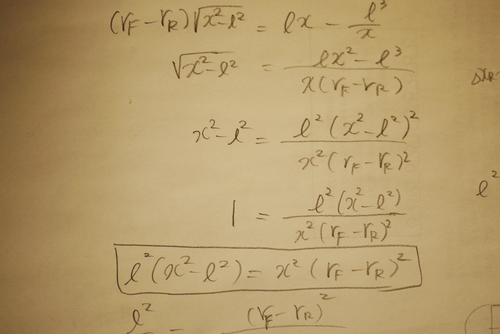 (r_F - r_R)√(x² - ℓ²) = ℓx - ℓ³/x
√(x² - ℓ²) = (ℓx² - ℓ³)/(x(r_F - r_R))
x² - ℓ² = ℓ²(x² - ℓ²)²/(x²(r_F - r_R)²)
1 = ℓ²(x² - ℓ²)/(x²(r_F - r_R)²)
ℓ²
ℓ²(x² - ℓ²) = x²(r_F - r_R)²
ℓ² (r_F - r_R)²